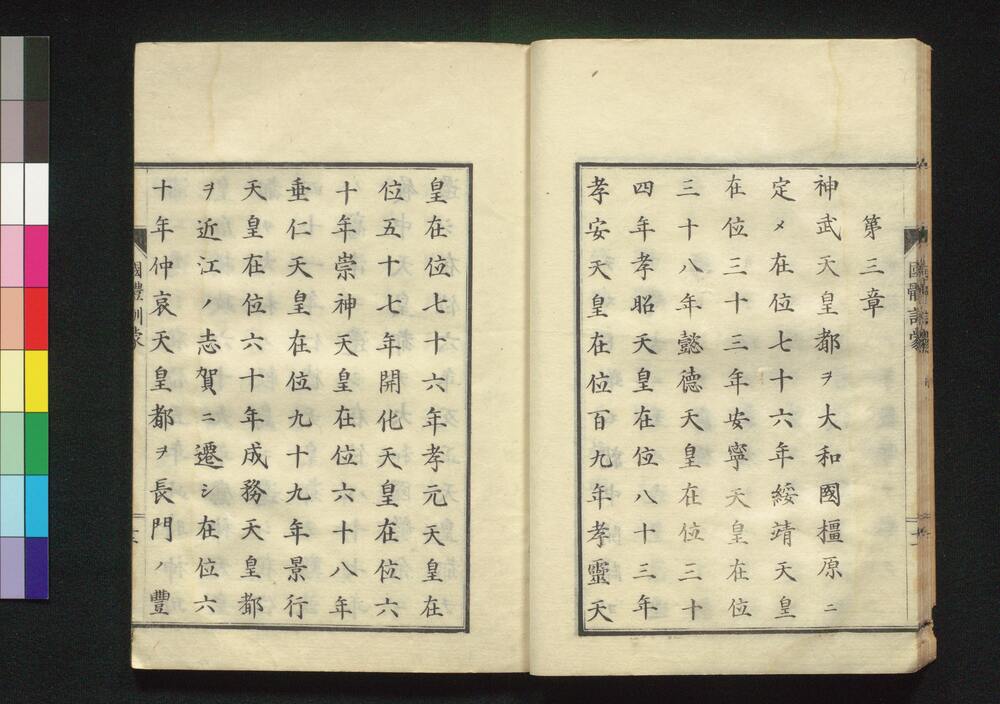 第三章
神武天皇都ヲ大和國橿原ニ
定メ在位七十六年綏靖天皇
在位三十三年安寧天皇在位
三十八年懿德天皇在位三十
四年孝昭天皇在位八十三年
孝安天皇在位百九年孝靈天
皇在位七十六年孝元天皇在
位五十七年開化天皇在位六
十年崇神天皇在位六十八年
垂仁天皇在位九十九年景行
天皇在位六十年成務天皇都
ヲ近江ノ志賀ニ遷シ在位六
十年仲哀天皇都ヲ長門ノ豐
國體訓蒙